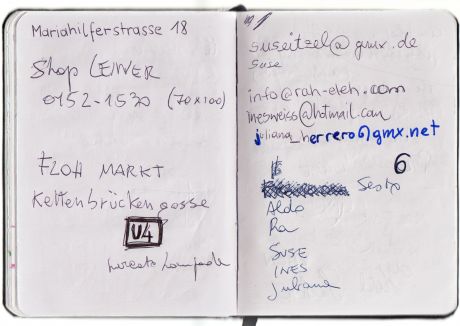 Mariahilferstrasse 18
Shop LEINER
0152-1530 (70x100)
FLOH MARKT
Kettenbrückengasse
U4
suseitzel@gmx.de
Suse
info@rah-eleh.com
inesweiss@hotmail.com
juliana_herrero6@gmx.net
6
Sesto
Aldo
Ra
SUSE
INES
Juliana